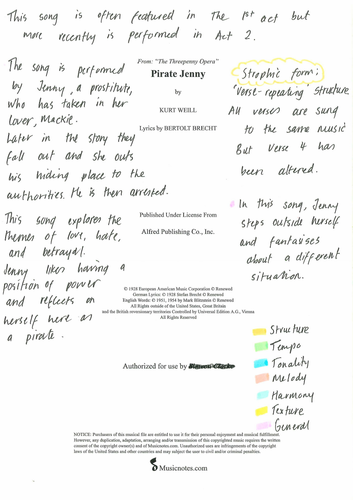 This song is often featured in the 1st act but
more recently is performed in Act 2.
The song is performed
by Jenny, a prostitute,
who has taken in her
lover, Mackie.
Later in the story they
fall out and she outs
his hiding place to the
authorities. He is then arrested.
This song explores the
themes of love, hate,
and betrayal.
Jenny likes having a
position of power
and reflects on
herself here as
a pirate.
From: "The Threepenny Opera"
Pirate Jenny
by
KURT WEILL
Lyrics by BERTOLT BRECHT
Published Under License From
Alfred Publishing Co., Inc.
© 1928 European American Music Corporation © Renewed
German Lyrics: © 1928 Stefan Brecht © Renewed
English Words: © 1951, 1954 by Mark Blitzstein © Renewed
All Rights outside of the United States, Great Britain
and the British reversionary territories Controlled by Universal Edition A.G., Vienna
All Rights Reserved
Authorized for use by
NOTICE: Purchasers of this musical file are entitled to use it for their personal enjoyment and musical fulfillment.
However, any duplication, adaptation, arranging and/or transmission of this copyrighted music requires the written
consent of the copyright owner(s) and of Musicnotes.com. Unauthorized uses are infringements of the copyright
laws of the United States and other countries and may subject the user to civil and/or criminal penalties.
Musicnotes.com
Strophic form:
'Verse-repeating' structure
All verses are sung
to the same music
But verse 4 has
been altered.
In this song, Jenny
steps outside herself
and fantasises
about a different
situation.
Structure
Tempo
Tonality
Melody
Harmony
Texture
General